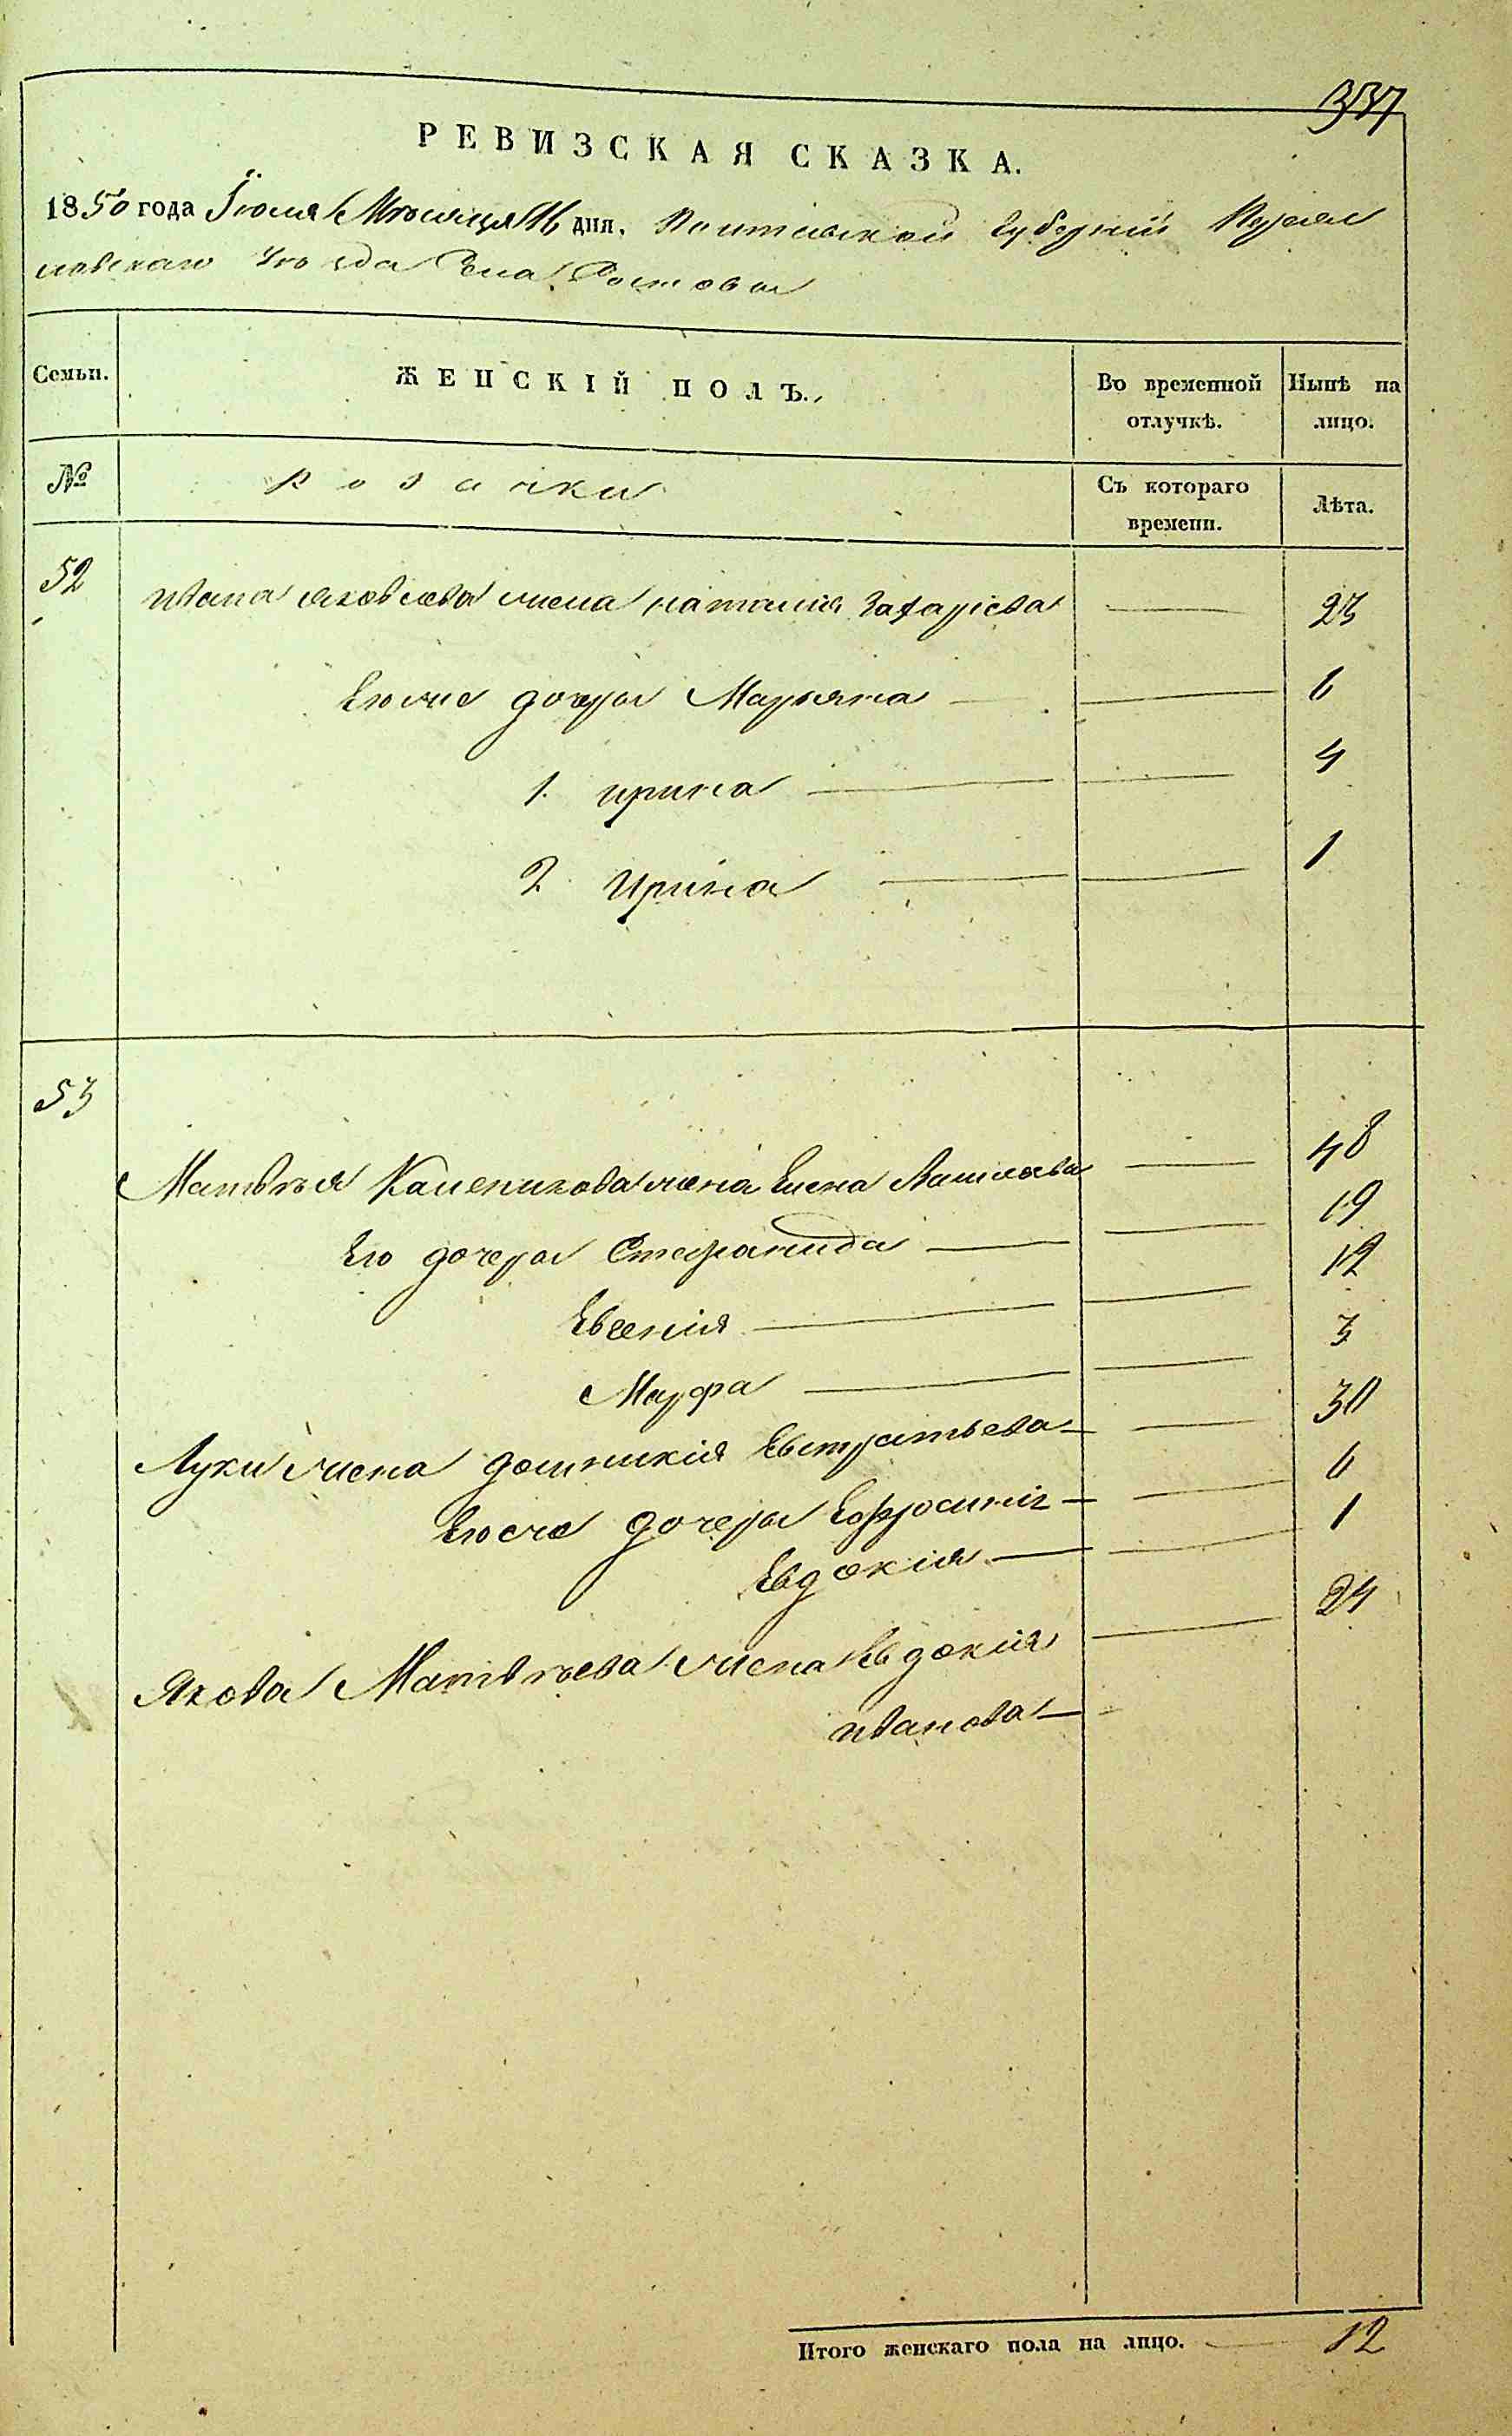 337
РЕВИЗСКАЯ СКАЗКА.
1850 года Іюля Мѣсяца 16 дня. Полтавской Губерніи Переяс
лавскаго Уѣзда Села
Семьи. ЖЕНСКІЙ ПОЛЪ. Во временной отлучкѣ. Нынѣ на лицо.
№ Козачки Съ котораго времени. Лѣта.
52 Ивана Яковлева жена Наталия Захаріева — 23
Егоже дочеры Марьяна — 6
1. Ирина — 4
2 Ирина — 1
53
Матвѣя жена Елена — 48
Его дочеры Стефанида — 19
Евгенія — 12
Марфа — 3
Луки жена Домникія Евстратьева — 30
Егоже дочеры — 6
Евдокія — 1
Якова Матвѣева жена Евдокія — 24
Иванова —
Итого женскаго пола на лицо. — 12